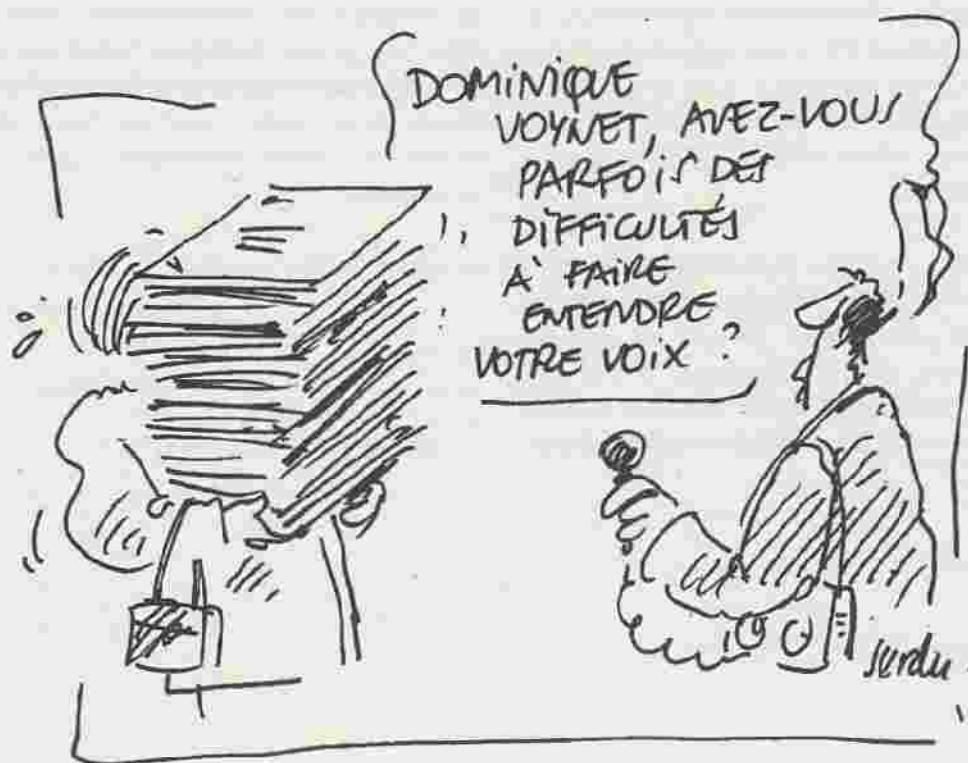 DOMINIQUE
VOYNET, AVEZ-VOUS
PARFOIS DES
DIFFICULTÉS
À FAIRE
ENTENDRE
VOTRE VOIX ?
serdu